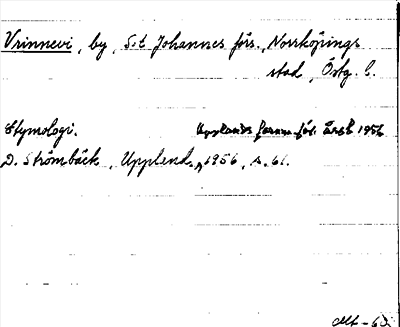 Vrinnevi, by, S:t Johannes förs., Norrköpings
stad, Östg. l.
Etymologi. Upplands fornm. för. årsb. 1956
D. Strömbäck, Upplend., 1956, s. 61.